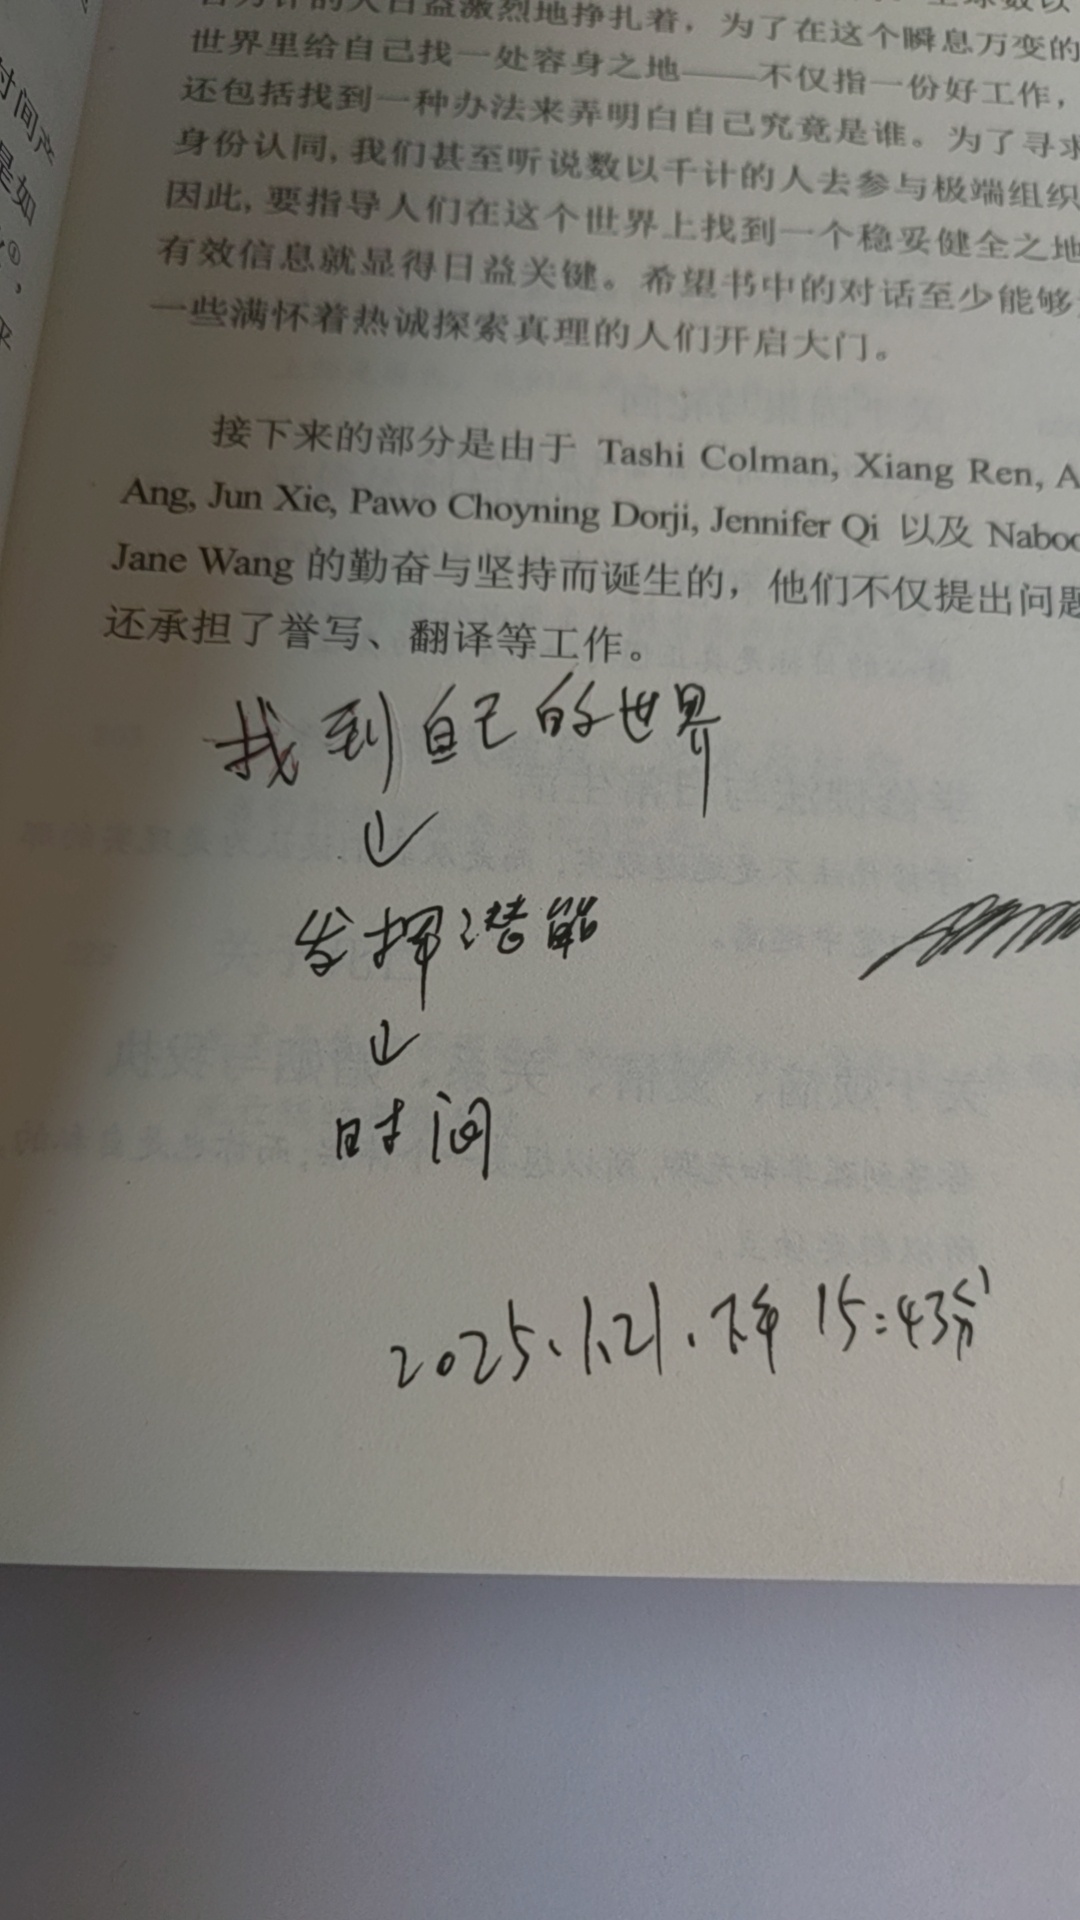 时间产
是如
①
百万计的人日益激烈地挣扎着，为了在这个瞬息万变的
世界里给自己找一处容身之地——不仅指一份好工作，
还包括找到一种办法来弄明白自己究竟是谁。为了寻求
身份认同,我们甚至听说数以千计的人去参与极端组织
因此,要指导人们在这个世界上找到一个稳妥健全之地
有效信息就显得日益关键。希望书中的对话至少能够
一些满怀着热诚探索真理的人们开启大门。
接下来的部分是由于 Tashi Colman, Xiang Ren, A
Ang, Jun Xie, Pawo Choyning Dorji, Jennifer Qi 以及 Naboo
Jane Wang 的勤奋与坚持而诞生的，他们不仅提出问题
还承担了誊写、翻译等工作。
找到自己的世界
↓
发挥潜能
↓
时间
2025、1.21.下午15:43分